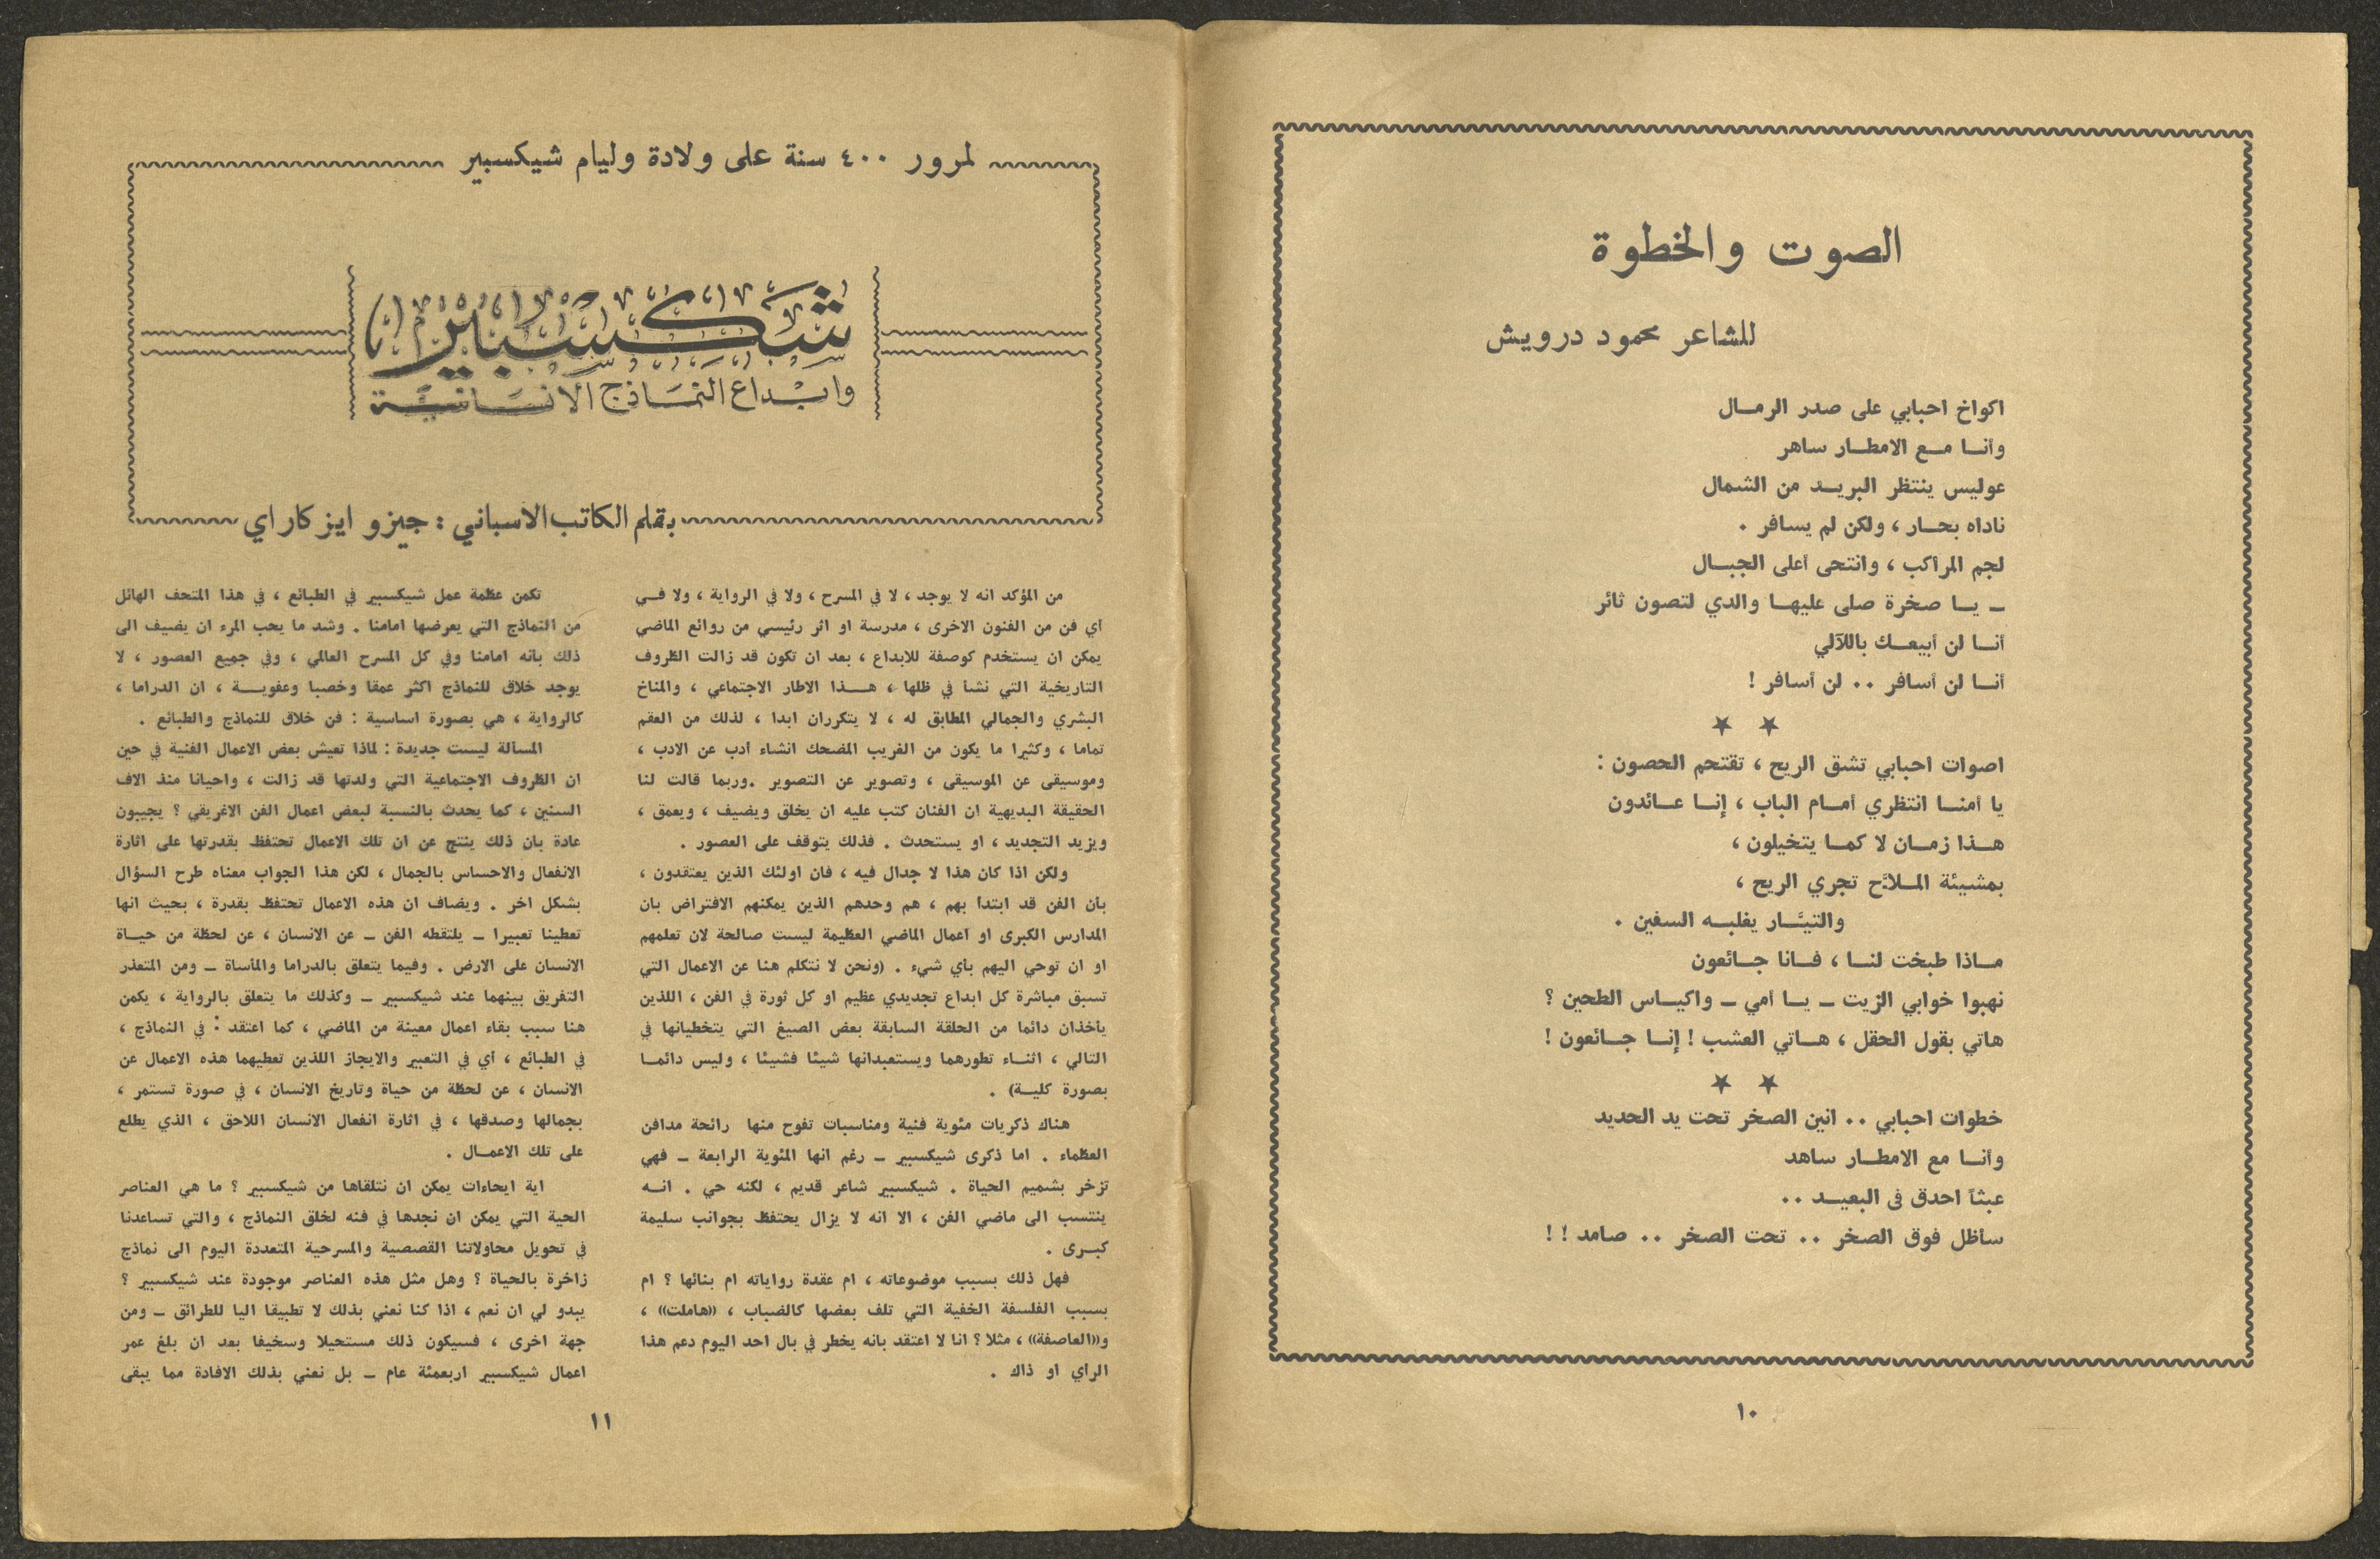 الصوت والخطوة
للشاعر محمود درويش
اكواخ احبابي على صدر الرمـال
وأنـا مـع الامطـار ساهر
عوليس ينتظر البريـد من الشمال
ناداه بحـار ، ولكن لم يسافر .
لجم المراكب ، وانتحى أعلى الجبـال
ـ يـا صخرة صلى عليهـا والدي لتصون ثائر
أنـا لن أبيعـك باللآلي
أنـا لن أسافر .. لن أسافر !
★ ★
اصوات احبابي تشق الريح ، تقتحم الحصون :
يا أمنـا انتظري أمـام الباب ، إنـا عـائدون
هـذا زمـان لا كمـا يتخيلون ،
بمشيئة المـلاَّح تجري الريح ،
والتيَّـار يغلبـه السفين .
مـاذا طبخت لنـا ، فـانا جـائعون
نهبوا خوابي الزيت ـ يـا أمي ـ واكيـاس الطحين ؟
هاتي بقول الحقل ، هـاتي العشب ! إنـا جـائعون !
★ ★
خطوات احبابي .. انين الصخر تحت يد الحديد
وأنـا مع الامطـار ساهد
عبثاً احدق في البعيـد ..
سأظل فوق الصخر .. تحت الصخر .. صامد ! !
١٠
لمرور ٤٠٠ سنة على ولادة وليام شيكسبير
شكسبير
وابداع النماذج الانسانية
بقلم الكاتب الاسباني : جيزو ايزكاراي
من المؤكد انه لا يوجد ، لا في المسرح ، ولا في الرواية ، ولا فـي
أي فن من الفنون الاخرى ، مدرسة او اثر رئيسي من روائع الماضي
يمكن ان يستخدم كوصفة للابداع ، بعد ان تكون قد زالت الظروف
التاريخية التي نشأ في ظلها ، هـذا الاطار الاجتماعي ، والمناخ
البشري والجمالي المطابق له ، لا يتكرران ابدا ، لذلك من العقم
تماما ، وكثيرا ما يكون من الغريب المضحك انشاء أدب عن الادب ،
وموسيقى عن الموسيقى ، وتصوير عن التصوير .وربما قالت لنا
الحقيقة البديهية ان الفنان كتب عليه ان يخلق ويضيف ، ويعمق ،
ويزيد التجديد ، او يستحدث . فذلك يتوقف على العصور .
ولكن اذا كان هذا لا جدال فيه ، فان اولئك الذين يعتقدون ،
بأن الفن قد ابتدأ بهم ، هم وحدهم الذين يمكنهم الافتراض بان
المدارس الكبرى او اعمال الماضي العظيمة ليست صالحة لان تعلمهم
او ان توحي اليهم بأي شيء . (ونحن لا نتكلم هنا عن الاعمال التي
تسبق مباشرة كل ابداع تجديدي عظيم او كل ثورة في الفن ، اللذين
يأخذان دائما من الحلقة السابقة بعض الصيغ التي يتخطيانها في
التالي ، اثنـاء تطورهما ويستعبدانها شيئا فشيئا ، وليس دائمـا
بصورة كليـة) .
هناك ذكريات مئوية فنية ومناسبات تفوح منها رائحة مدافن
العظماء . اما ذكرى شيكسبير ـ رغم انها المئوية الرابعة ـ فهي
تزخر بشميم الحياة . شيكسبير شاعر قديم ، لكنه حي . انـه
ينتسب الى ماضي الفن ، الا انه لا يزال يحتفظ بجوانب سليمة
كبـرى .
فهل ذلك بسبب موضوعاته ، ام عقدة رواياته ام بنائها ؟ ام
بسبب الفلسفة الخفية التي تلف بعضها كالضباب ، «هاملت» ،
و«العاصفة» ، مثلا ؟ انا لا اعتقد بانه يخطر في بال احد اليوم دعم هذا
الراي او ذاك .
تكمن عظمة عمل شيكسبير في الطبائع ، في هذا المتحف الهائل
من النماذج التي يعرضها امامنا . وشد ما يحب المرء ان يضيف الى
ذلك بأنه امامنا وفي كل المسرح العالمي ، وفي جميع العصور ، لا
يوجد خلاق للنماذج اكثر عمقا وخصبا وعفويـة ، ان الدراما ،
كالرواية ، هي بصورة اساسية : فن خلاق للنماذج والطبائع .
المسألة ليست جديدة : لماذا تعيش بعض الاعمال الفنية في حين
ان الظروف الاجتماعية التي ولدتها قد زالت ، واحيانا منذ الاف
السنين ، كما يحدث بالنسبة لبعض اعمال الفن الاغريقي ؟ يجيبون
عادة بان ذلك ينتج عن ان تلك الاعمال تحتفظ بقدرتها على اثارة
الانفعال والاحساس بالجمال ، لكن هذا الجواب معناه طرح السؤال
بشكل اخر . ويضاف ان هذه الاعمال تحتفظ بقدرة ، بحيث انها
تعطينا تعبيرا ـ يلتقطه الفن ـ عن الانسان ، عن لحظة من حيـاة
الانسان على الارض . وفيما يتعلق بالدراما والمأساة ـ ومن المتعذر
التفريق بينهما عند شيكسبير ـ وكذلك ما يتعلق بالرواية ، يكمن
هنا سبب بقاء اعمال معينة من الماضي ، كما اعتقد : في النماذج ،
في الطبائع ، أي في التعبير والايجاز اللذين تعطيهما هذه الاعمال عن
الانسان ، عن لحظة من حياة وتاريخ الانسان ، في صورة تستمر ،
بجمالها وصدقها ، في اثارة انفعال الانسان اللاحق ، الذي يطلع
على تلك الاعمـال .
اية ايحاءات يمكن ان نتلقاها من شيكسبير ؟ ما هي العناصر
الحية التي يمكن ان نجدها في فنه لخلق النماذج ، والتي تساعدنا
في تحويل محاولاتنا القصصية والمسرحية المتعددة اليوم الى نماذج
زاخرة بالحياة ؟ وهل مثل هذه العناصر موجودة عند شيكسبير ؟
يبدو لي ان نعم ، اذا كنا نعني بذلك لا تطبيقا اليا للطرائق ـ ومن
جهة اخرى ، فسيكون ذلك مستحيلا وسخيفا بعد ان بلغ عمر
اعمال شيكسبير اربعمئة عام ـ بل نعني بذلك الافادة مما يبقى
١١